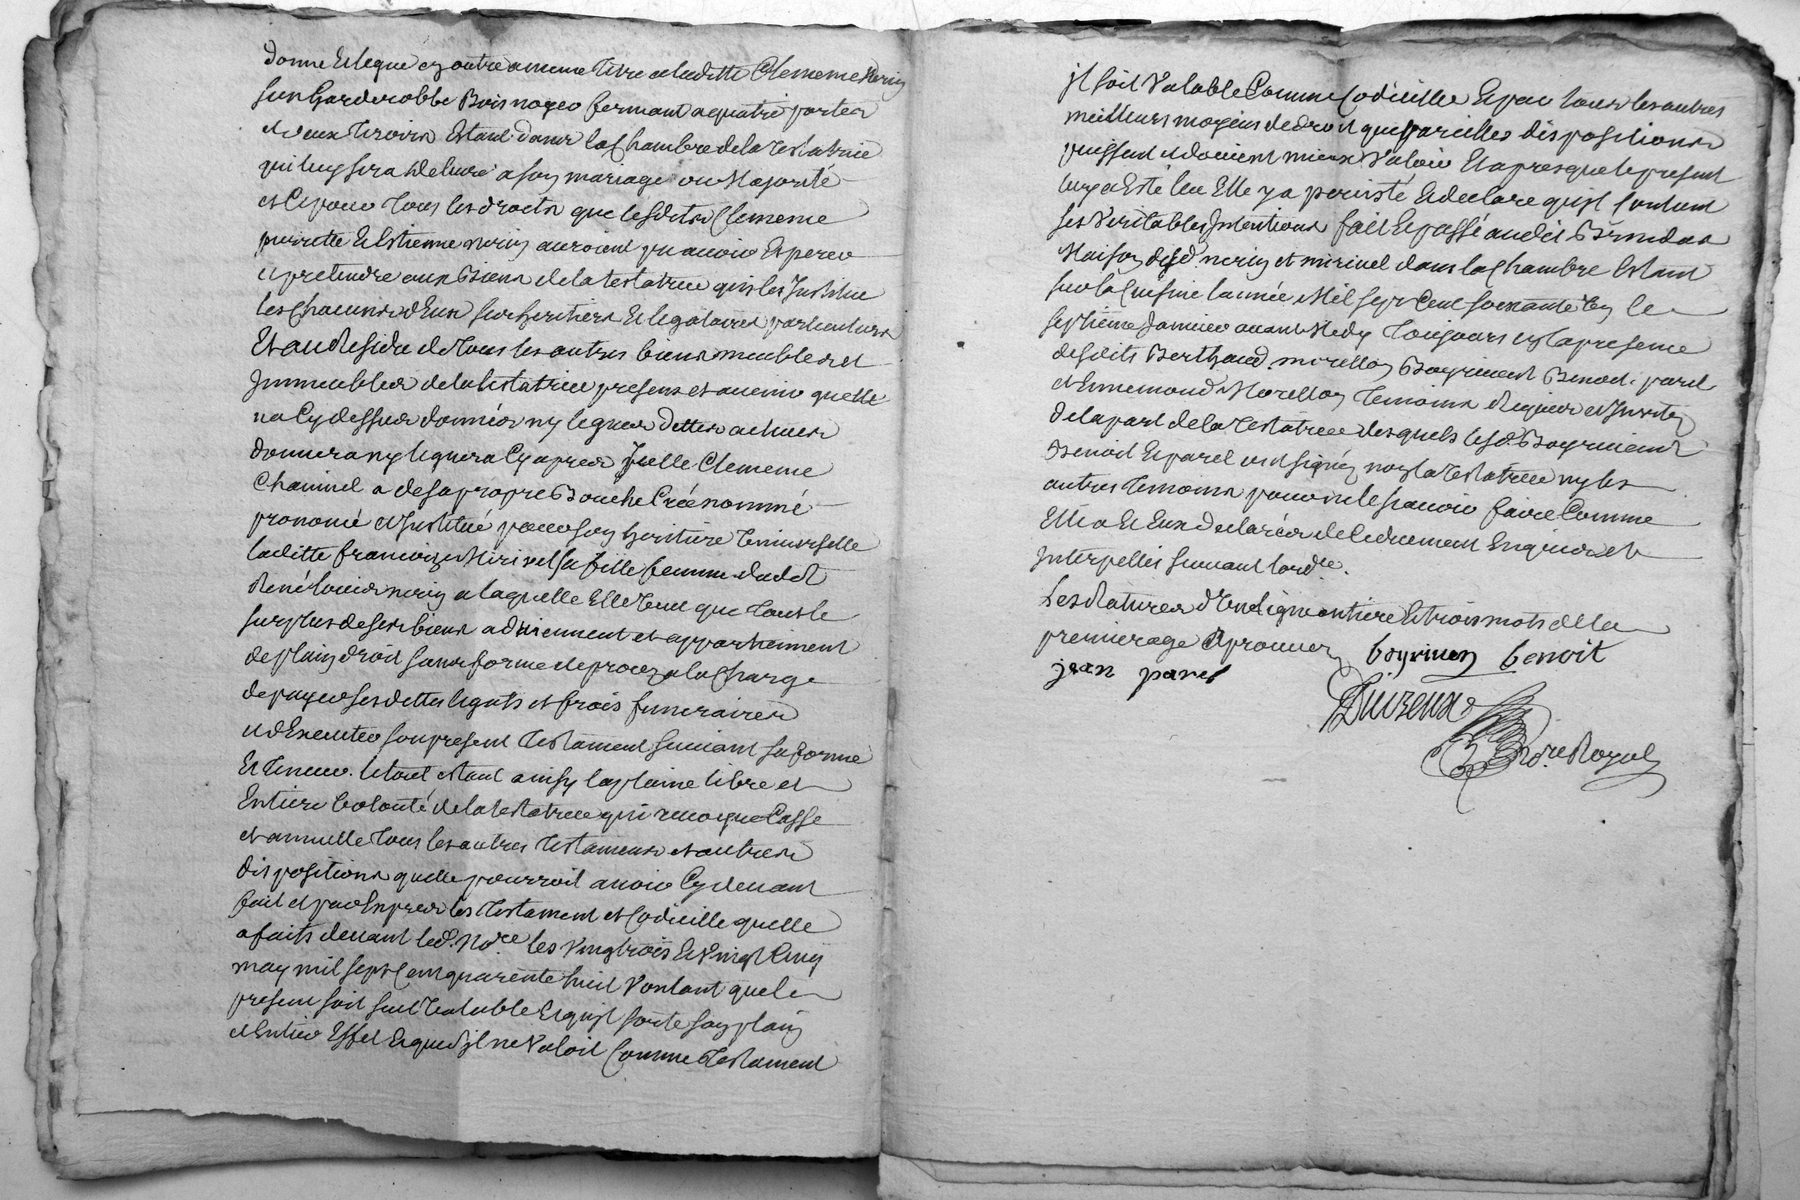 donne et legue en outre a meme titre a laditte Clemence Nerin
son Garderobbe Bois noyer fermant a quatre portes
et deux tiroirs Estant dans la Chambre de la testatrice
qui luy sera delivré a son mariage ou Majorité
et Ce pour tous les droits que lesdits Clemence
pierrette et Estienne nerin auroient pu avoir Esperer
et pretendre aux Biens de la testatrice qui les Institue
les Chacuns d'Eux ses heritiers et legataires particuliers
Et au Residu de tous les autres biens meubles et
Immeubles de la testatrice presens et avenir quelle
na Cy dessus donnés ny legués dettes actives
donnera ny leguera Cy apres Icelle Clemence
Chaninel a de sa propre Bouche Créé nommé
prononcé et Institué pour son heritiere Universelle
laditte francoize Mirivel sa fille femme dudt
René louis nerin a laquelle Elle veut que tout le
surplus de ses biens adviennent et appartiennent
de plain droit sans forme de procez a la Charge
de payer ses dettes legats et frais funeraires
et d'Executer son present testament suivant sa forme
Et teneur. le tout Estant ainsy la plaine libre et
Entiere volonté de la testatrice qui revoque Casse
et annulle tous les autres testamens et autres
dispositions quelle pourroit avoir Cy devant
fait et par Exprès les testament et Codicille quelle
a faits devant led. Nore les vingt trois et vingt Cinq
may mil sept Cent quarente huit voulant que le
present soit seul valable Et quil sorte son plain
et Entier Effet Et que s'il ne valoit Comme testament
Il soit valable Comme Codicille Et par tous les autres
meilleurs moyens de droit que pareilles dispositions
puissent et doivent mieux valoir Et apres que le present
luy a Esté leu Elle y a persisté Et declare quil Contient
ses veritables Intentions fait Et passé audit Brindas
Maison desd. nerin et mirivel dans la Chambre Estant
sur la Cuisine l'année Mil sept Cent soixante Un le
septieme Janvier avant Midy toujours En la presence
desdits Berthaud morellon Boyrivent Benoit parel
et Ennemond Morellon temoins Requis et Invités
de la part de la testatrice desquels lesd. Boyrivent
Benoit Et parel ont signé non la testatrice ny les
autres temoins pour ne le scavoir faire Comme
Elle a Et Eux declarés de le deument Enquis et
Interpellés suivant l'ordce.
les Ratures d'Une ligne entiere Et trois mots de la
premiere page Approuvés boyriven benoit
jean parel
Duizeux
Nore Royal